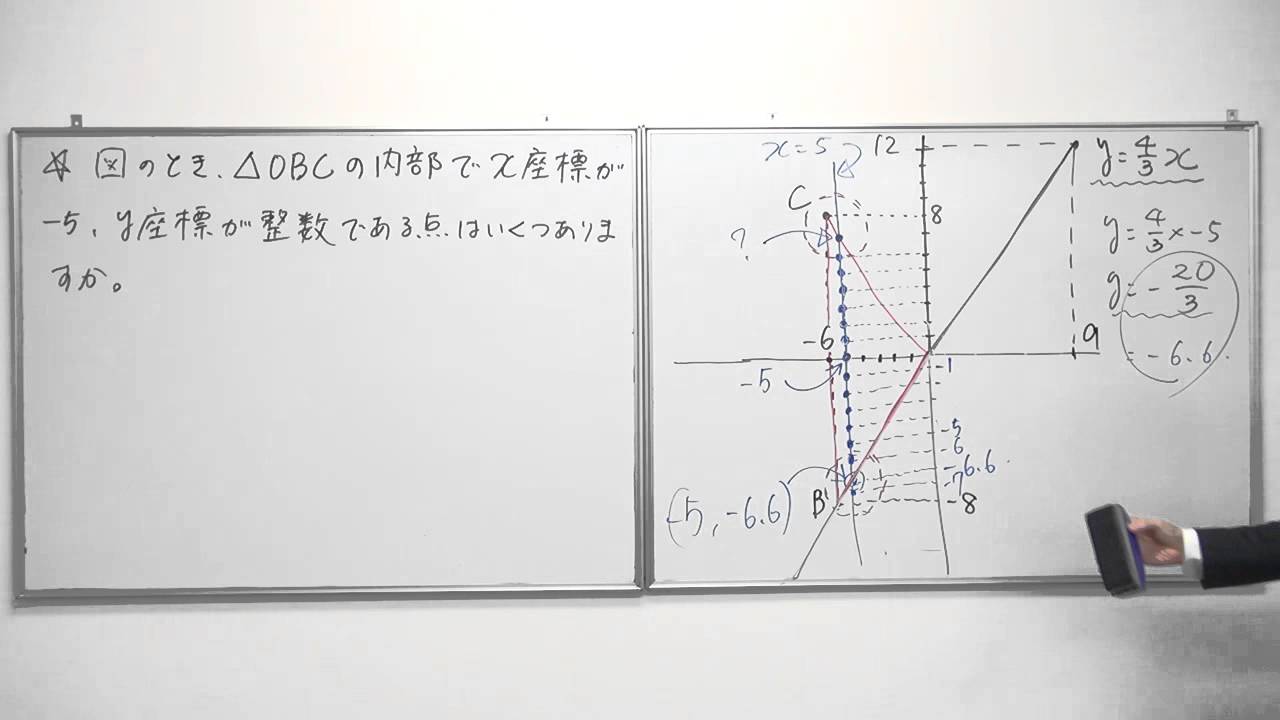 ☆ 図のとき、△OBCの内部でx座標が
-5、y座標が整数である点はいくつありま
すか。
x=5
12
C
8
?
-6
9
-5
-1
-5
6
-6.6
-7
-8
B
(-5, -6.6)
y=4/3x
y=4/3×-5
y=-20/3
=-6.6.